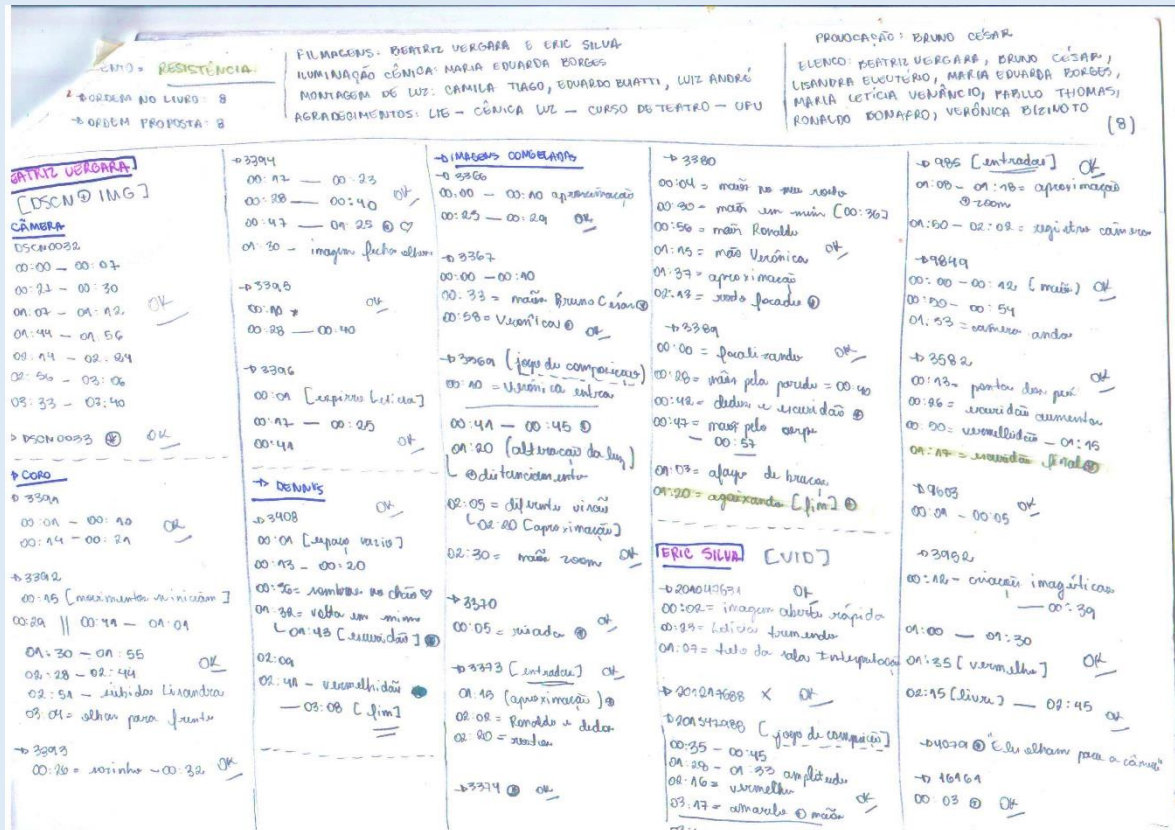 RESISTÊNCIA
ORDEM NO LIVRO: 8
ORDEM PROPOSTA: 8
FILMAGENS: BEATRIZ VERGARA E ERIC SILVA
ILUMINAÇÃO CÊNICA: MARIA EDUARDA BORGES
MONTAGEM DE LUZ: CAMILA TIAGO, EDUARDO BUATTI, LUIZ ANDRÉ
AGRADECIMENTOS: LIE - CÊNICA LUZ - CURSO DE TEATRO - UFU
PROVOCAÇÃO: BRUNO CÉSAR
ELENCO: BEATRIZ VERGARA, BRUNO CÉSAR,
LISANDRA ELEUTÉRIO, MARIA EDUARDA BORGES,
MARIA LETÍCIA VENÂNCIO, PABLLO THOMAS,
RONALDO BONAFRO, VERÔNICA BIZINOTO
(8)
EATRIZ VERGARA
[DSCN IMG]
CÂMERA
DSCN0032
00:00 - 00:07
00:21 - 00:30
01:07 - 01:12
OK
01:44 - 01:56
02:14 - 02:24
02:56 - 03:06
03:33 - 07:40
DSCN0033 OK
CORO
3391
00:01 - 00:10 OK
00:14 - 00:21
3392
00:15 [movimentos iniciam]
00:29 || 00:41 - 01:01
01:30 - 01:55
OK
02:28 - 02:44
02:51 - subida Lisandra
03:04 = olhar para frente
3393
00:26 = sozinho - 00:32 OK
3394
00:12 — 00:23
00:28 — 00:40 OK
00:47 — 01:25
01:30 - imagem fecha
3395
00:10 OK
00:28 — 00:40
3396
00:01 [espirro Letícia]
00:17 — 00:25
00:41 OK
DENNIS
OK
3408
00:01 [espaço vazio]
00:13 - 00:20
00:36 = sombras no chão
01:32 = volta em mim
01:43 [escuridão]
02:09
02:41 - vermelhidão
— 03:08 [fim]
IMAGENS CONGELADAS
3366
00:00 - 00:10 aproximação
00:25 - 00:29 OK
3367
00:00 - 00:10
00:33 = mãos Bruno César
00:58 = Verônica OK
3369 (jogo de composição)
00:10 = Verônica entra
00:41 - 00:45
01:20 (alteração da luz)
distanciamento
02:05 = diferente visão
02:20 [aproximação]
02:30 = mãos zoom OK
3370
00:05 = risada OK
3373 [entradas] OK
01:13 (aproximação)
02:02 = Ronaldo e dedos
02:20 =
3374 OK
3380
00:04 = mãos no meu rosto
00:30 = mãos em mim [00:36]
00:56 = mãos Ronaldo
01:15 = mão Verônica OK
01:37 = aproximação
02:13 = rosto focado
3389
00:00 = focalizando OK
00:28 = mãos pela parede = 00:40
00:42 = dedos e escuridão
00:47 = mãos pelo corpo
— 00:57
01:03 = afago de braços
01:20 = agaixando [fim]
ERIC SILVA [VID]
201047631 OK
00:02 = imagem aberta rápida
00:23 = Letícia tremendo
01:07 = teto da sala Interpretação
201217688 X OK
201347988 [jogo de composição]
00:35 - 00:45
01:28 - 01:33 amplitude
02:16 = vermelho OK
03:17 = amarelo mãos
985 [entradas] OK
01:08 - 01:18 = aproximação
zoom
01:50 - 02:02 = registro câmera
9849
00:00 - 00:12 (mãos) OK
00:50 - 00:54
01:53 = câmera anda
3582
00:13 = pontas dos pés OK
00:26 = escuridão aumenta
00:50 = vermelhidão - 01:15
01:17 = escuridão final
9603
00:01 - 00:05 OK
3952
00:12 - criações imagéticas
— 00:39
01:00 — 01:30
01:35 [vermelho] OK
02:15 [livre] — 02:45
OK
04079 "Eles olham para a câmera"
16161
00:03 OK